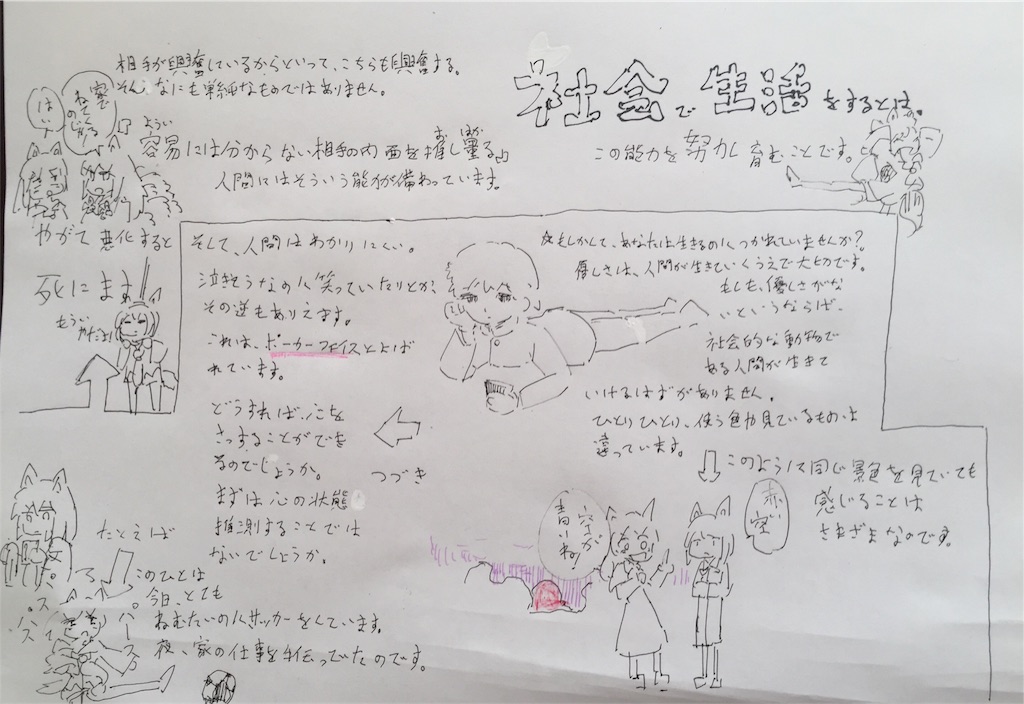 社会で生活をするとは。
この能力を努力し育むことです。
相手が興奮しているからといって、こちらも興奮する。
そんなにも単純なものではありません。
よういに
容易には分からない相手の内面を推し量る
おしはか
人間にはそういう能力が備わっています。
家で
ねてくる
はい
やがて悪化すると
死にます
もうパ
そして、人間はわかりにくい。
泣きそうなのに笑っていたりとか、
その逆もありえます。
これは、ポーカーフェイスとよば
れています。
どうすれば、心を
さっすることができ
るのでしょうか。
まずは心の状態
推測することでは
ないでしょうか。
つづき
もしかして、あなたは生きるのにつかれていませんか?
優しさは、人間が生きていくうえで大切です。
もしも、優しさがな
いというならば、
社会的な動物で
ある人間が生きて
いけるはずがありません。
ひとりひとり、使う色や見ているものは
違っています。
このように同じ景色を見ていても
感じることは
さまざまなのです。
空が
青いね!
赤い
空
たとえば
このひとは
今日、とても
ねむたいのにサッカーをしています。
夜、家の仕事を手伝ってたのです。
パス
パース